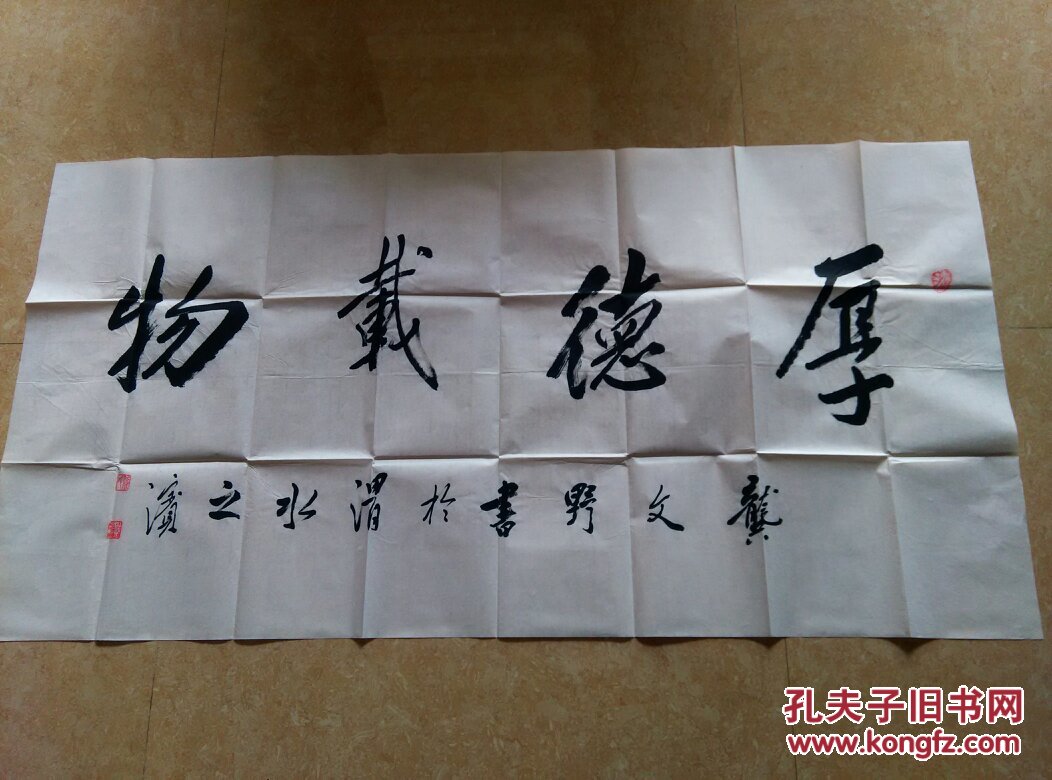 厚德載物
龔文野書於渭水之濱
孔夫子旧书网
www.kongfz.com